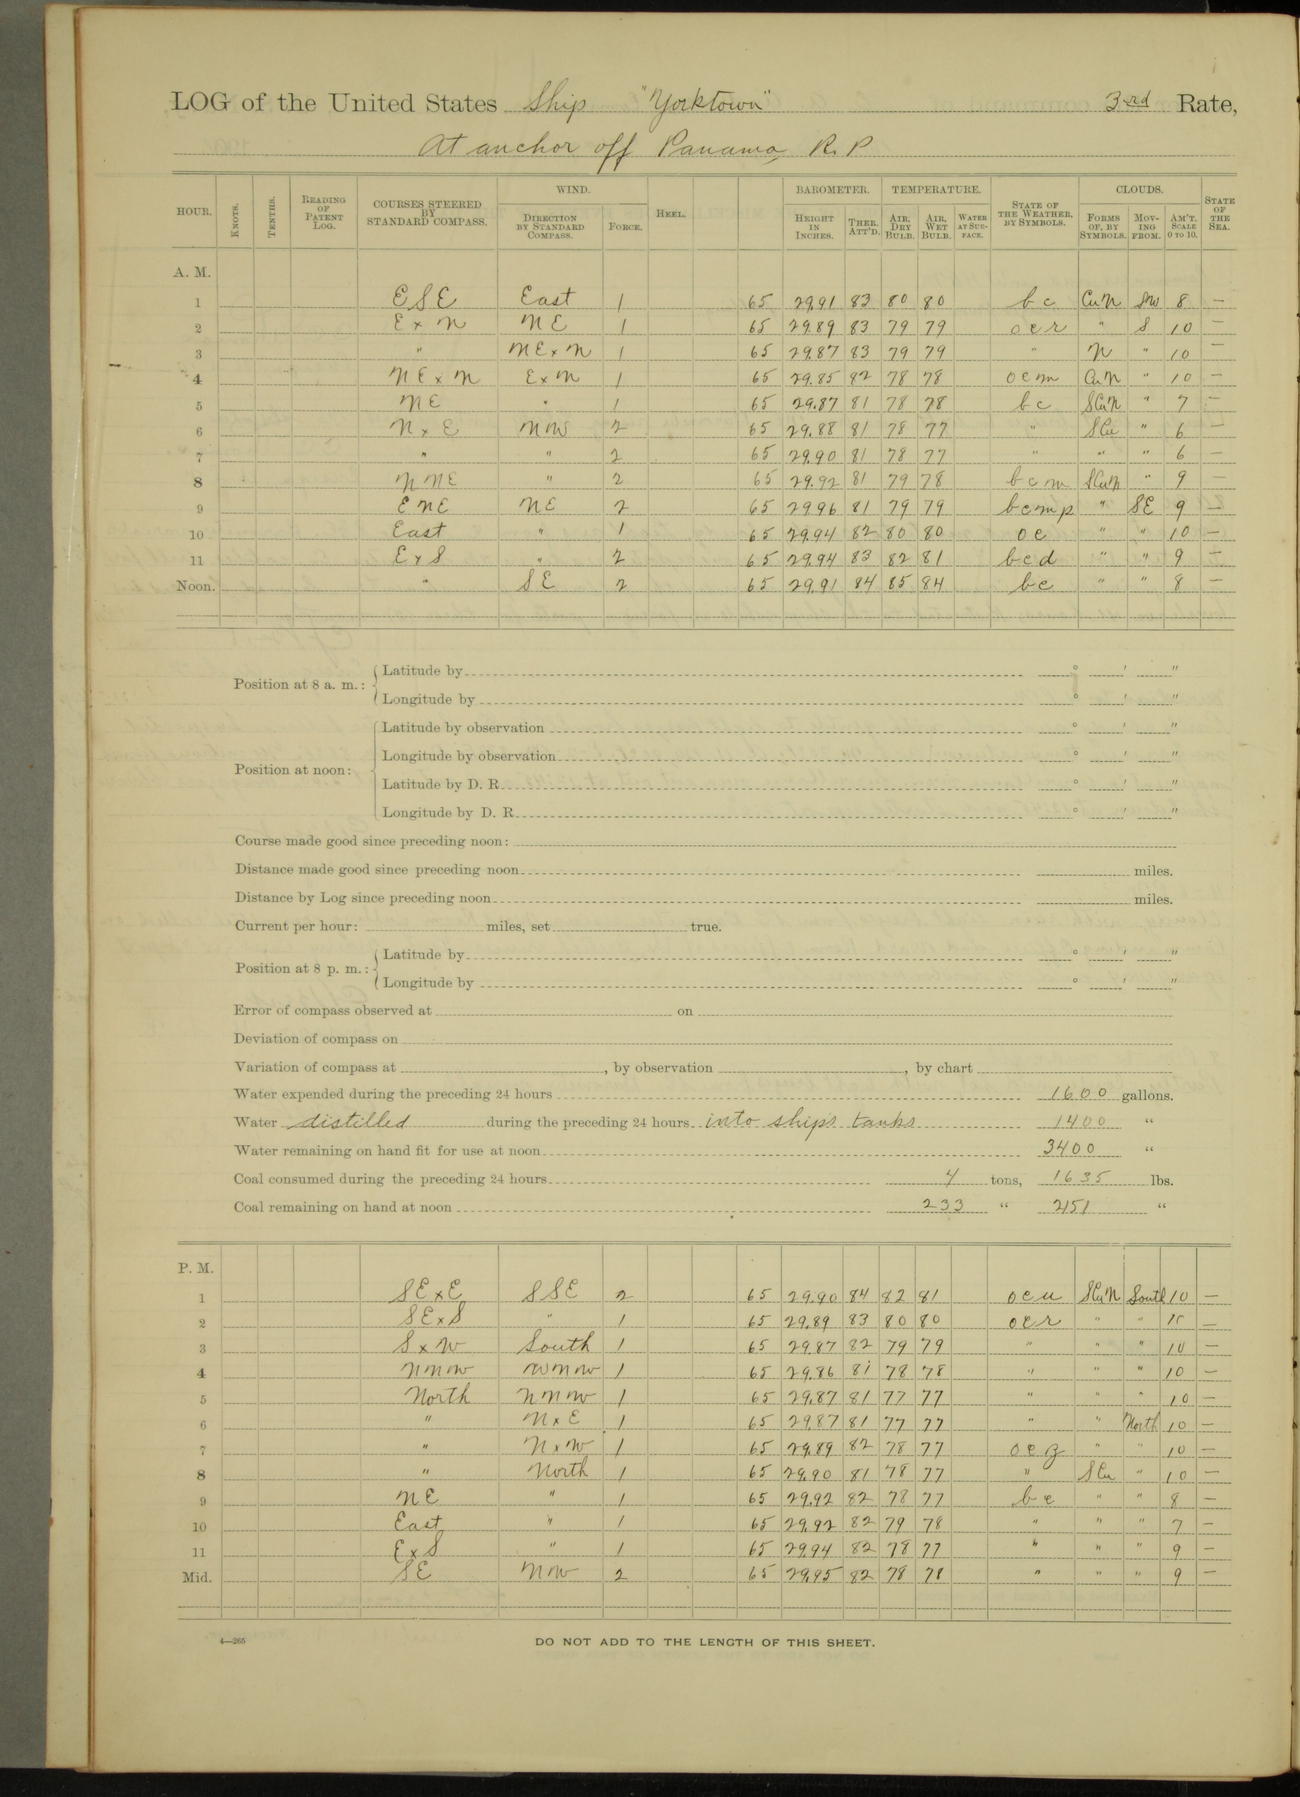 LOG of the United States Ship "Yorktown" 3rd Rate,
At anchor off Panama, R. P
HOUR. KNOTS. TENTHS. READING OF PATENT LOG. COURSES STEERED BY STANDARD COMPASS. WIND. DIRECTION BY STANDARD COMPASS. FORCE. HEEL. BAROMETER. HEIGHT IN INCHES. THER. ATT'D. TEMPERATURE. AIR, DRY BULB. AIR, WET BULB. WATER AT SURFACE. STATE OF THE WEATHER, BY SYMBOLS. CLOUDS. FORMS OF, BY SYMBOLS. MOVING FROM. AM'T. SCALE 0 TO 10. STATE OF THE SEA.
A. M.
1 ESE East 1 65 29.91 83 80 80 bc CuN SW 8 —
2 E x N NE 1 65 29.89 83 79 79 ocr " S 10 —
3 " NE x N 1 65 29.87 83 79 79 " N " 10 —
4 NE x N E x N 1 65 29.85 82 78 78 ocm CuN " 10 —
5 NE " 1 65 29.87 81 78 78 bc SCuN " 7 —
6 N x E NW 2 65 29.88 81 78 77 " SCu " 6 —
7 " " 2 65 29.90 81 78 77 " " " 6 —
8 NNE " 2 65 29.92 81 79 78 bcm SCuN " 9 —
9 ENE NE 2 65 29.96 81 79 79 bcmp " SE 9 —
10 East " 1 65 29.94 82 80 80 oc " " 10 —
11 E x S " 2 65 29.94 83 82 81 bcd " " 9 —
Noon. " SE 2 65 29.91 84 85 84 bc " " 8 —
Position at 8 a. m.: Latitude by ° ' "
Longitude by ° ' "
Position at noon: Latitude by observation ° ' "
Longitude by observation ° ' "
Latitude by D. R. ° ' "
Longitude by D. R. ° ' "
Course made good since preceding noon:
Distance made good since preceding noon miles.
Distance by Log since preceding noon miles.
Current per hour: miles, set true.
Position at 8 p. m.: Latitude by ° ' "
Longitude by ° ' "
Error of compass observed at on
Deviation of compass on
Variation of compass at , by observation , by chart
Water expended during the preceding 24 hours 1600 gallons.
Water distilled during the preceding 24 hours into ship's tanks 1400 "
Water remaining on hand fit for use at noon 3400 "
Coal consumed during the preceding 24 hours 4 tons, 1635 lbs.
Coal remaining on hand at noon 233 " 2151 "
P. M.
1 SE x E SSE 2 65 29.90 84 82 81 ocu SCuN South 10 —
2 SE x S " 1 65 29.89 83 80 80 ocr " " 10 —
3 S x W South 1 65 29.87 82 79 79 " " " 10 —
4 NNW WNW 1 65 29.86 81 78 78 " " " 10 —
5 North NNW 1 65 29.87 81 77 77 " " " 10 —
6 " N x E 1 65 29.87 81 77 77 " " North 10 —
7 " N x W 1 65 29.89 82 78 77 ocg " " 10 —
8 " North 1 65 29.90 81 78 77 " SCu " 10 —
9 NE " 1 65 29.92 82 78 77 bc " " 8 —
10 East " 1 65 29.92 82 79 78 " " " 7 —
11 E x S " 1 65 29.94 82 78 77 " " " 9 —
Mid. SE NW 2 65 29.95 82 78 78 " " " 9 —
4—265
DO NOT ADD TO THE LENGTH OF THIS SHEET.